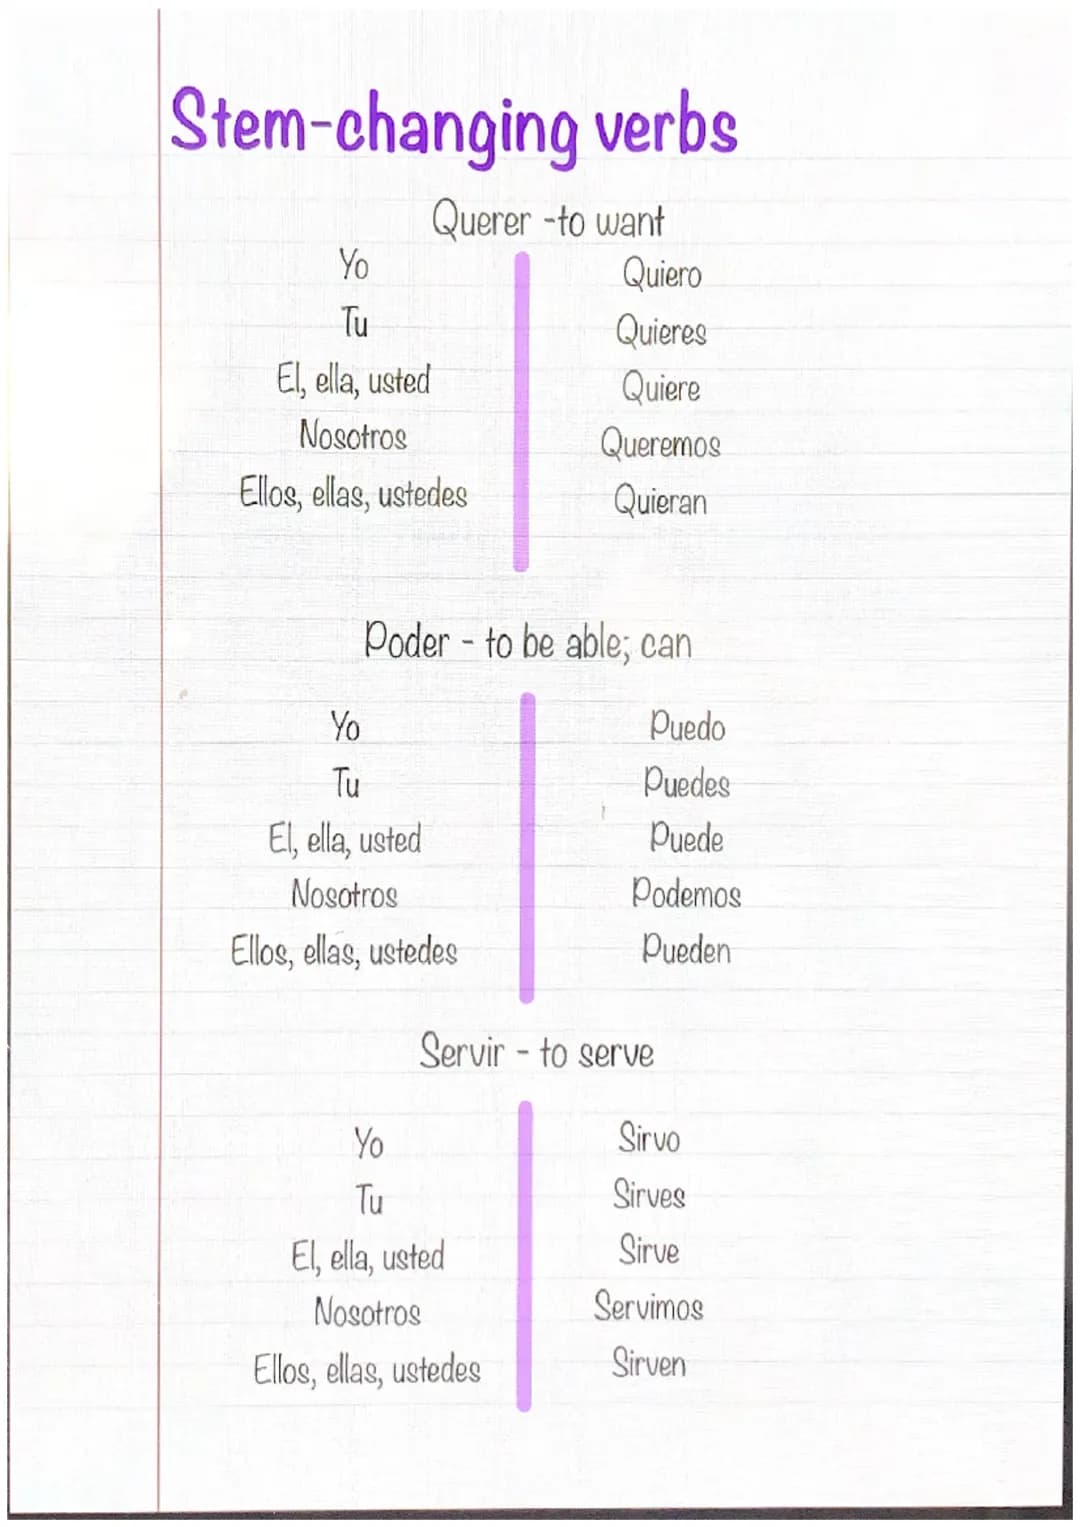 Stem-changing verbs
Querer -to want
Yo Quiero
Tu Quieres
El, ella, usted Quiere
Nosotros Queremos
Ellos, ellas, ustedes Quieran
Poder - to be able; can
Yo Puedo
Tu Puedes
El, ella, usted Puede
Nosotros Podemos
Ellos, ellas, ustedes Pueden
Servir - to serve
Yo Sirvo
Tu Sirves
El, ella, usted Sirve
Nosotros Servimos
Ellos, ellas, ustedes Sirven